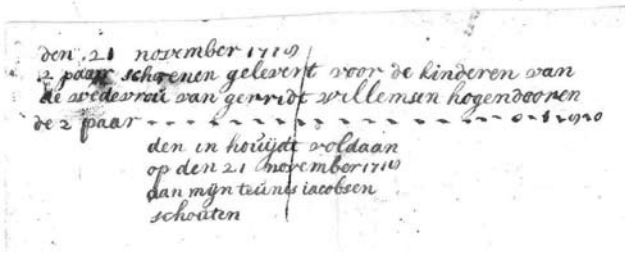 den 21 november 1719
2 paar schoenen gelevert voor de kinderen van
de wedevrou van gerridt willemsen hogendooren
de 2 paar - - - - - - - - - - - - - - - -
den in houijdt voldaan
op den 21 november 1719
aan mijn teunis iacobsen
schouten